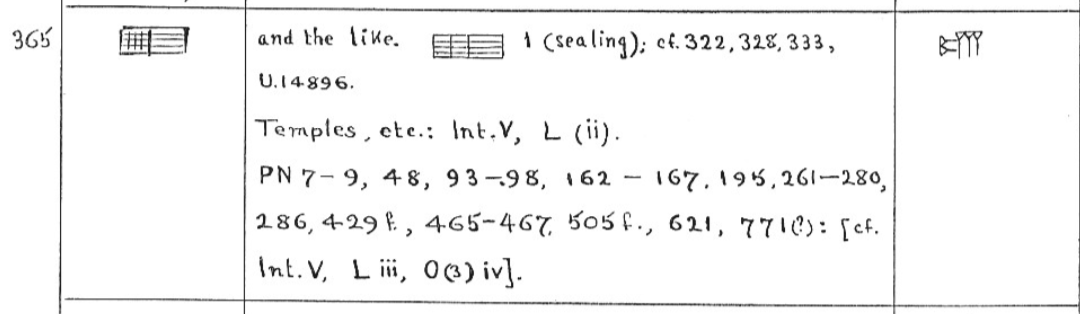 365 and the like. 1 (sealing); cf. 322, 328, 333,
U.14896.
Temples, etc.: Int. V, L (ii).
PN 7-9, 48, 93-98, 162 - 167, 195, 261-280,
286, 429 f., 465-467, 505 f., 621, 771(?): [cf.
Int. V, L iii, O(3) iv].